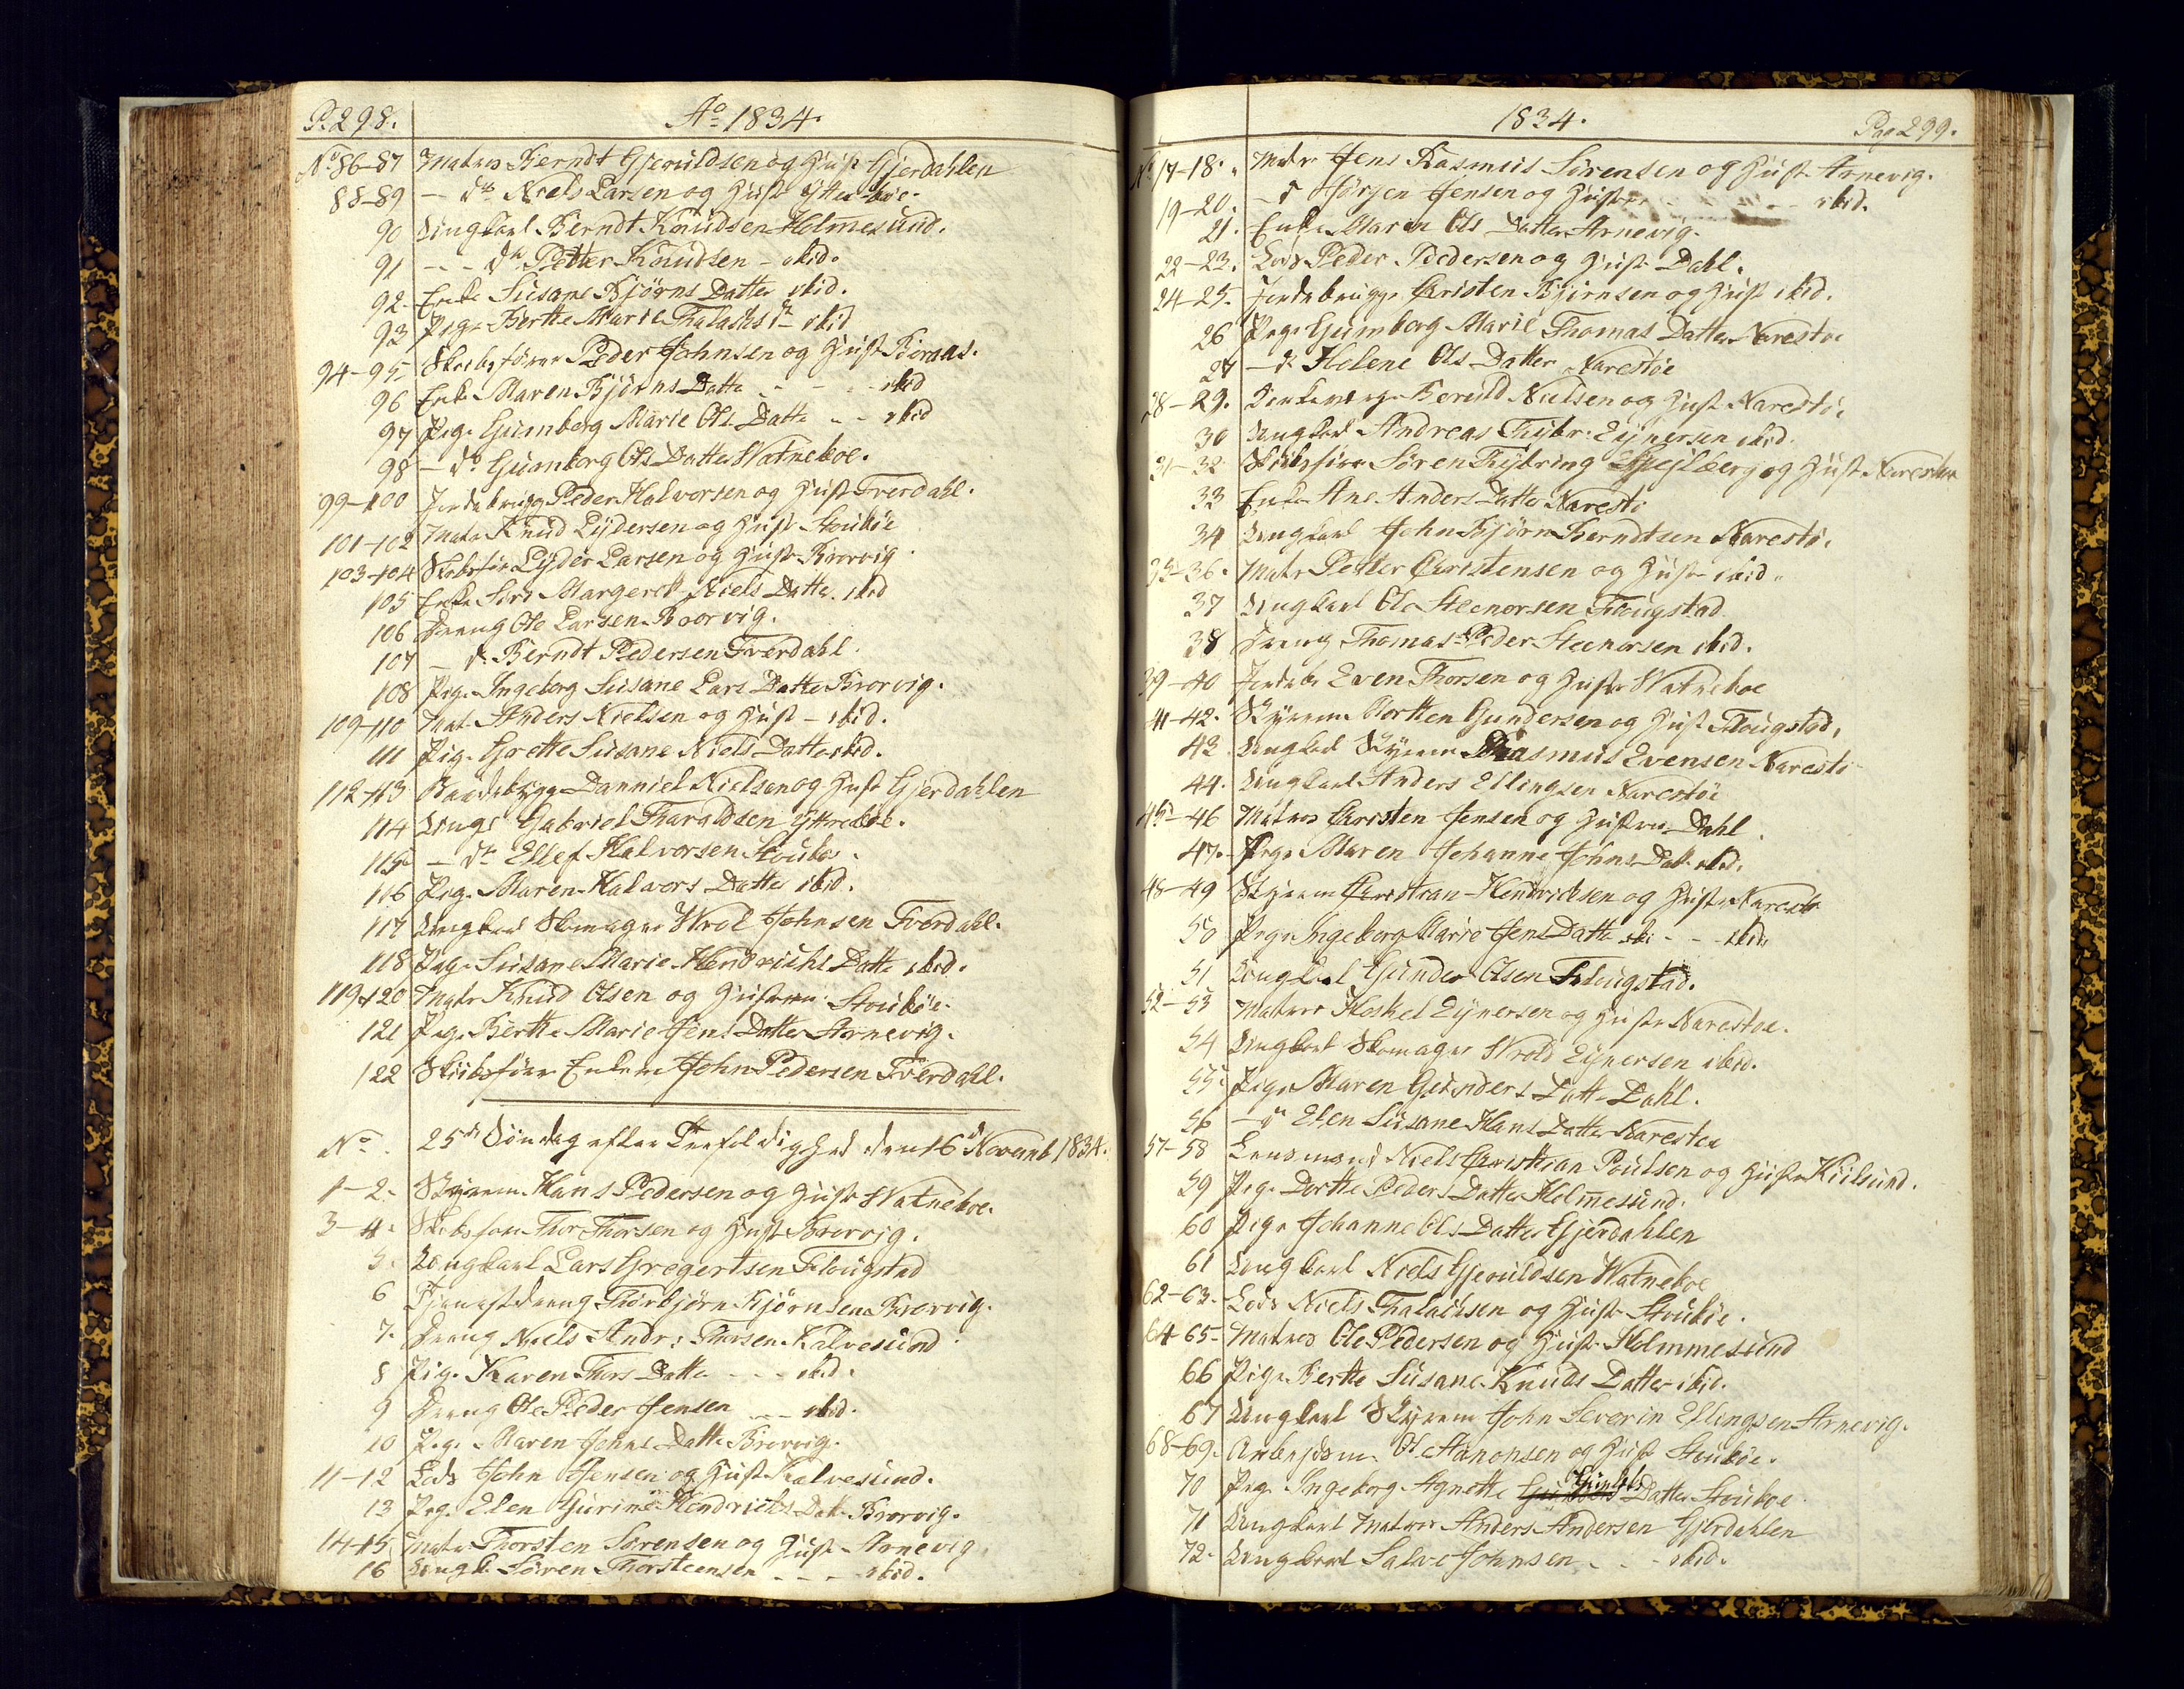 P. 298.
Ao 1834.
No 86-87 Matros Berndt Gjeruldsen og Hust Gjerdahlen
88-89 - do Niels Larsen og Hust Yttreboe.
90 Ungkarl Berndt Knudsen Holmesund.
91 - - do Petter Knudsen - ibid.
92 Enke Susane Bjørns Datter ibid.
93 Pige Berthe Marie Thalachs D. ibid
94-95 Skibsfører Peder Johnsen og Hust Boraas.
96 Enke Maren Bjørns Datte - - - ibid
97 Pige Gumberg Marie Ols Datte - - ibid
98 - do Gunborg Ols Datter Watneboe.
99-100 Jordebrug Peder Halvorsen og Hust Tverdahl.
101-102 Matr Knud Lydersen og Hust Stouböe
103-104 Skibsfør Lyder Larsen og Hust Brorvig.
105 Enke Siri Margreth Niels Datte. ibid
106 Dreng Ole Larsen Brorvig.
107 - do Berndt Pedersen Tverdahl.
108 Pige Ingeborg Susane Lars Datte Brorvig.
109-110 Mat. Anders Nielsen og Hust - ibid.
111 Pig. Grethe Susane Niels Datter ibid.
112-113 Baadsbygg Danniel Nielsen og Hust Gjerdahlen
114 Ungk Gabriel Tharaldsen Yttreböe.
115 - do Ellef Halvorsen Stouböe.
116 Pig. Maren Halvors Datter ibid.
117 Ungkarl Skomager Wrol Johnsen Tverdahl.
118 Pige Susane Marie Hendrichs Datte ibid.
119-120 Matr Knud Olsen og Hustrue Stouböe.
121 Pig. Berthe Marie Jens Datter Arnevig.
122 Skibsfører Enken John Pedersen Tverdahl.
No. 25de Søndag efter Trefoldighed den 16d Novemb 1834.
1-2. Styrem. Hans Pedersen og Hust Watneboe.
3-4. Skibsføre Thor Thorsen og Hust Brorvig.
5. Ungkarl Lars Gregertsen Flougstad
6 Tjenestdreng Thorbjørn Bjørnsen Brorvig.
7. Dreng Niels Andr: Thorsen Kalvesund
8 Pig. Karen Thors Datte - - - ibid.
9 Dreng Ole Peder Jensen - - ibid.
10 Pige Maren Johns Datte Brorvig.
11-12 Lods John Jensen og Hust Kalvesund.
13 Pig. Elen Gurine Hendrichs Dat. Brorvig.
14-15 Matr Thorsten Sørensen og Hust Arnevig.
16 Ungk. Søren Thorsteensen - - - ibid.
1834.
Pag 299.
No 17-18. Matr Jens Rasmus Sørensen og Hust Arnevig.
19-20. - do Jørgen Jensen og Hustr - - - ibid.
21. Enke Maren Ols Datter Arnevig.
22-23. Lods Peder Pedersen og Hust Dahl.
24-25. Jordebrugge Christen Bjørnsen og Hust ibid.
26 Pige Gumborg Marie Thomas Datter Narestöe
27 - do Helene Ols Datter Narestöe
28-29. Gjeruld Nielsen og Hust Narestö.
30 Ungkarl Andreas Thybr: Eynersen ibid.
31-32 Skibsfører Søren Thybring Spejlberg og Hust Narestöe
33 Enke Ane Anders Datter Narestö
34 Ungkarl John Bjørn Berndtsen Narestö.
35-36. Matr Petter Christensen og Hustr ibid.
37 Ungkarl Ole Steenersen Flougstad
38 Dreng Thomas Peder Steenersen ibid.
39-40 Jordebr Even Thorsen og Hustr Watneboe
41-42. Styrem. Morthen Gundersen og Hust Flougstad.
43 Ungkarl Styrem Rasmus Evensen Narestö
44. Ungkarl Anders Ellingsen Narestöe
45-46 Matros Christen Jensen og Hustrue Dahl.
47. Pige Maren Johanne Johns Datt ibid.
48-49 Styrem Christian Hendrichsen og Hustr Narestö
50 Pige Ingeborg Marie Jens Datte - - - ibid.
51 Ungkarl Gunder Olsen Flougstad.
52-53 Matros Theskel Eynersen og Hustr Narestoe.
54 Ungkarl Skomager Wrold Eynersen ibid.
55. Pige Maren Gunders Datt. Dahl.
56 - do Elen Susane Hans Datter Narestöe
57-58 Lensmand Niels Christian Poulsen og Hustr Kiilsund.
59 Pig. Dorthe Peders Datter Holmesund.
60 Pige Johanne Ols Datter Gjerdahlen
61 Ungkarl Niels Gjeruldsen Watneboe
62-63. Lods Niels Thalachsen og Hust Stouböe.
64-65. Matros Ole Pedersen og Hust Holmmesund
66 Pige Berthe Susane Knuds Datter ibid.
67 Ungkarl Styrem John Severin Ellingsen Arnevig.
68-69. Arbejdsm. Ole Aanonsen og Hust Stouböe.
70 Pige Ingeborg Agnethe Datter Stouboe
71 Ungkarl Matros Anders Andersen Gjerdahlen
72. Ungkarl Salve Johnsen - - - ibid.